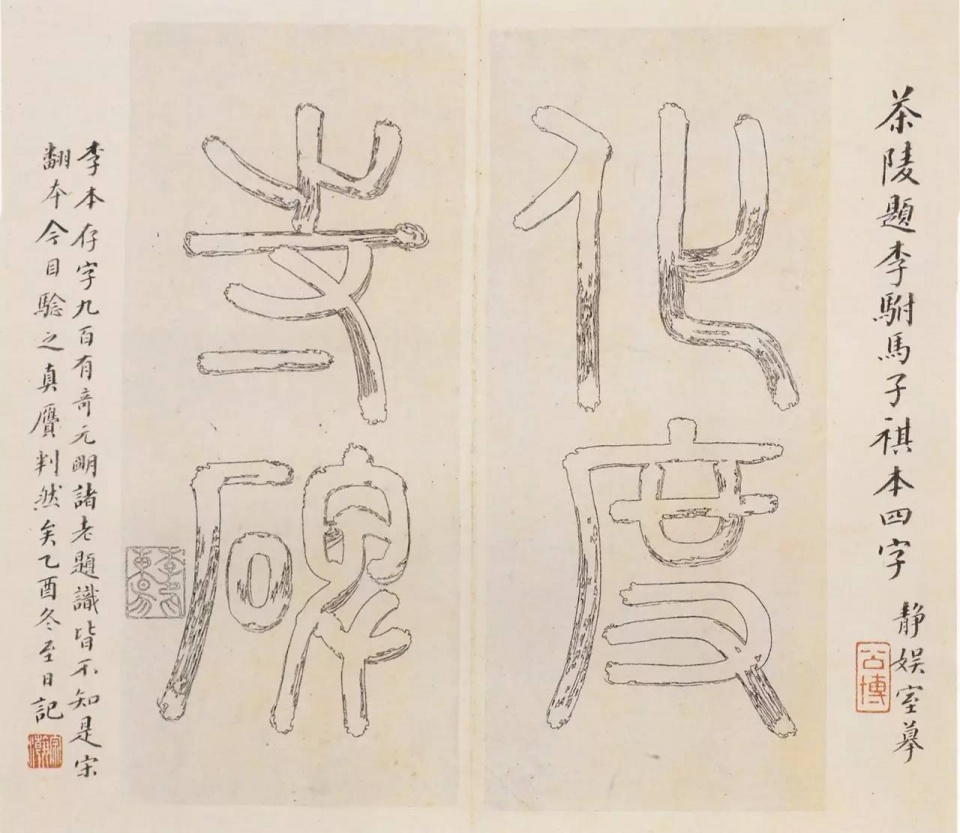 茶陵題李駙馬子祺本四字
静娱室摹
公博
化度
寺碑
李本存字九百有奇元明諸老題識皆不知是宋
翻本今目騐之真贋判然矣乙酉冬至日記